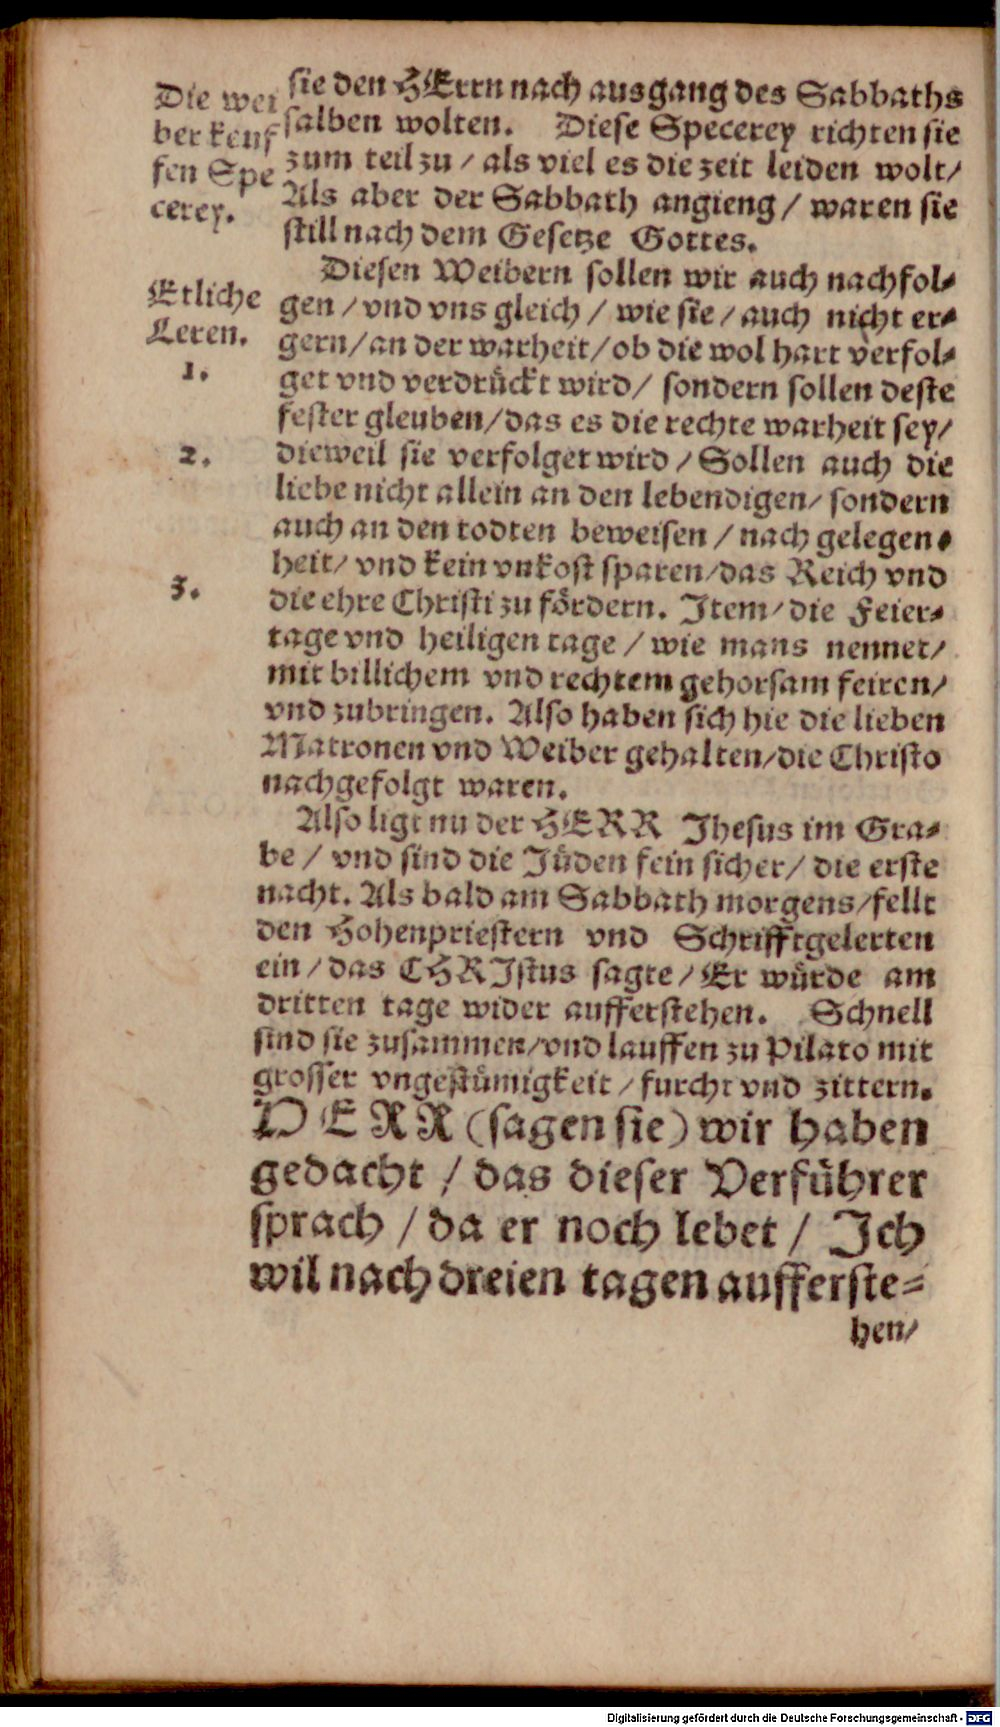 Die wei
ber keuf
fen Spe
cerey.
sie den HErrn nach ausgang des Sabbaths
salben wolten. Diese Specerey richten sie
zum teil zu / als viel es die zeit leiden wolt /
Als aber der Sabbath angieng / waren sie
still nach dem Gesetze Gottes.
Etliche
Leren.
1.
2.
3.
Diesen Weibern sollen wir auch nachfol-
gen / vnd vns gleich / wie sie / auch nicht er-
gern / an der warheit / ob die wol hart verfol-
get vnd verdrückt wird / sondern sollen deste
fester gleuben / das es die rechte warheit sey /
dieweil sie verfolget wird / Sollen auch die
liebe nicht allein an den lebendigen / sondern
auch an den todten beweisen / nach gelegen-
heit / vnd kein vnkost sparen / das Reich vnd
die ehre Christi zu fördern. Item / die Feier-
tage vnd heiligen tage / wie mans nennet /
mit billichem vnd rechtem gehorsam feiren /
vnd zubringen. Also haben sich hie die lieben
Matronen vnd Weiber gehalten / die Christo
nachgefolgt waren.
Also ligt nu der HERR Jhesus im Gra-
be / vnd sind die Jüden fein sicher / die erste
nacht. Als bald am Sabbath morgens / fellt
den Hohenpriestern vnd Schrifftgelerten
ein / das CHRIstus sagte / Er würde am
dritten tage wider aufferstehen. Schnell
sind sie zusammen / vnd lauffen zu Pilato mit
grosser vngestümigkeit / furcht vnd zittern.
HERR (sagen sie) wir haben
gedacht / das dieser Verführer
sprach / da er noch lebet / Ich
wil nach dreien tagen aufferste-
hen /
Digitalisierung gefördert durch die Deutsche Forschungsgemeinschaft - DFG